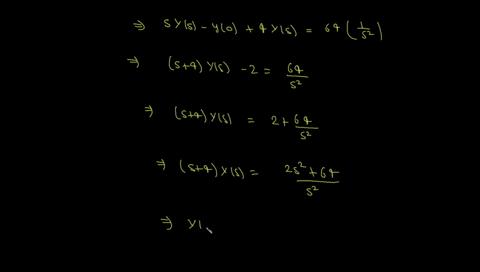 ⇒ sY(s) - y(0) + 4Y(s) = 64 (1/s²)
⇒ (s+4) Y(s) - 2 = 64/s²
⇒ (s+4) Y(s) = 2 + 64/s²
⇒ (s+4) Y(s) = 2s² + 64/s²
⇒ Y(